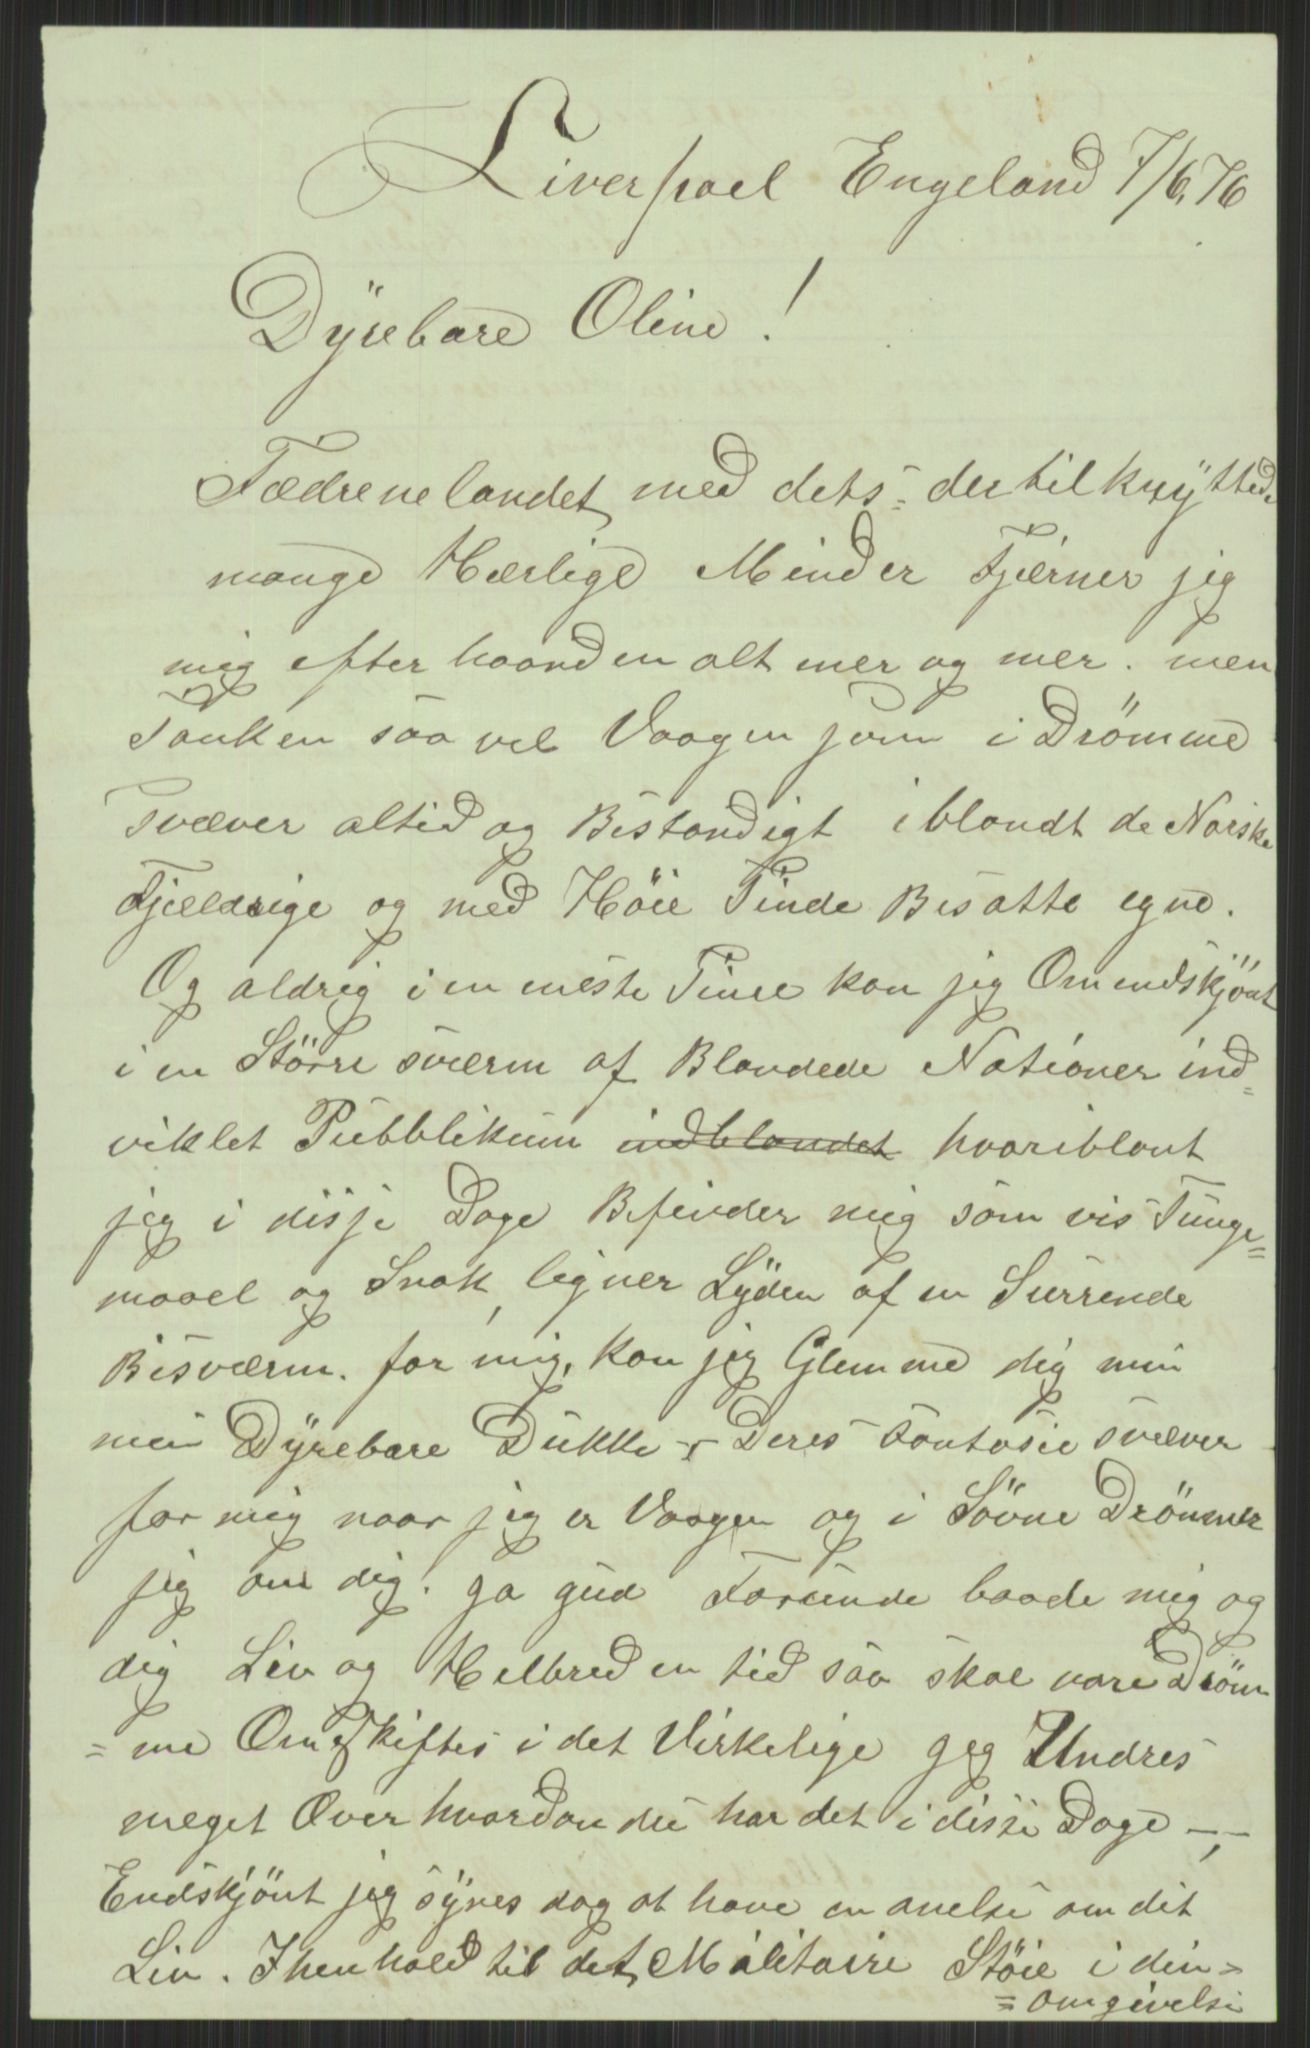 Liverpoel Engeland 7/6.76
Dÿrebare Oline!
Fædrenelandet, med dets der tilknÿttede
mange Hærlige Minder Fjærner jeg
mig efter haanden alt mer og mer. men
Tanken saa vel Vaagen som i Drömme
svæver altid og Bestandigt iblandt de Norske
Fjeldrige og med Höie Tinde Besatte egne.
Og aldrig i en eneste Time kan jeg Omendskjönt
i en Större sværm af Blandede Nationer ind=
viklet Pubblikum indblandet hvoriblant
jeg i disse Dage Befinder mig som vis Tunge=
maael og Snak, ligner Lÿden af en Surrende
Bisværm. for mig, kan jeg Glemme dig min
min Dÿrebare Dukke - Deres Fantasie svæver
for mig naar jeg er Vaagen og i Sövne Drömmer
jeg om dig. ga gud Forunde baade mig og
dig Liv og Helbred en tid saa skal vare Dröm
= me Omskiftes i det Virkelige jeg Undres
meget Over hvordan du har det i disse Dage -,-
Endskjönt jeg sÿnes dog at have en anelse om dit
Liv. I henhold til det, Militaire Stöie i din=
= omgivelse